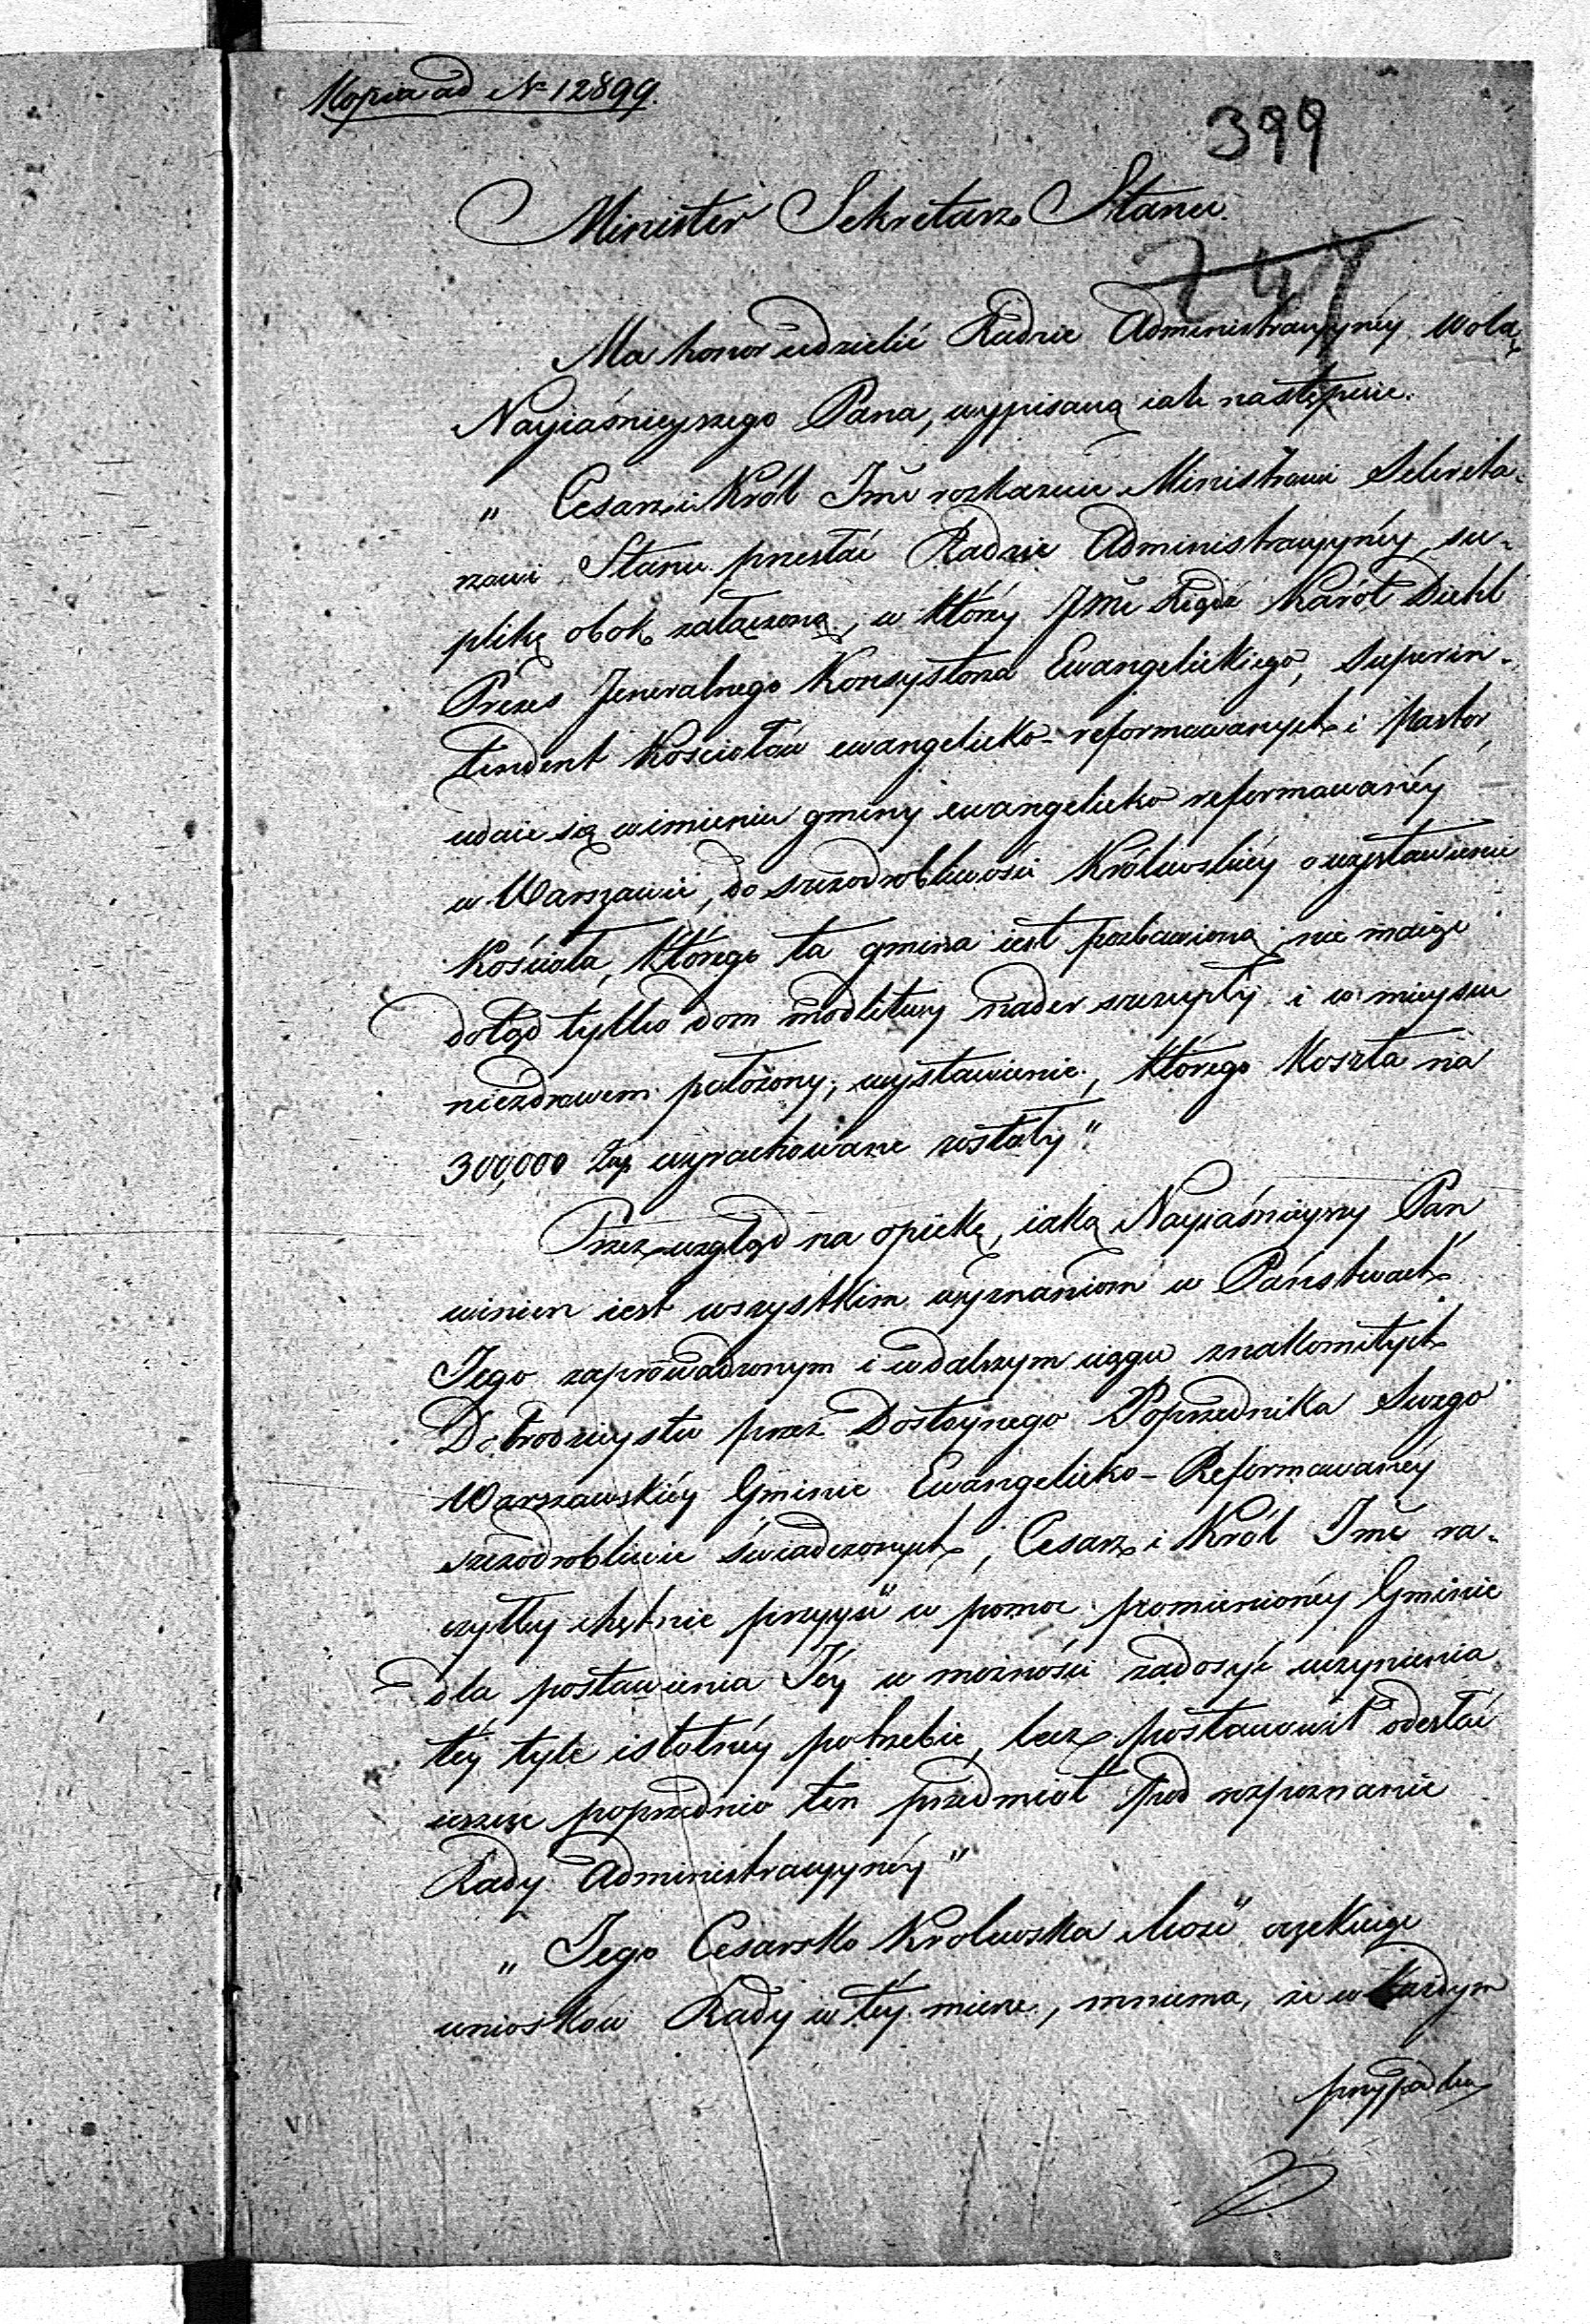 Kopia ad N 12899.
399
Minister Sekretarz Stanu.
247
Ma honor udzielić Radzie Administracyynéy wolą
Nayiaśnieyszego Pana, wypisaną iak następuie.
„ Cesarz i Król Jmć rozkazuie Ministrowi Sekreta-
rzowi Stanu przesłać Radzie Administracyynéy su-
plikę obok załączoną, w któréy JMć Xiądz Karól Diehl
Prezes Jeneralnego Konsystorza Ewangelickiego, Superin-
tendent Kościołów ewangelicko-reformowanych i Pastor,
udaie się w imieniu gminy ewangelicko reformowanéy
w Warszawie, do szczodrobliwości Królewskiéy o wystawienie
Kościoła, którego ta gmina iest pozbawioną, nie maiąc
dotąd tylko dom modlitwy nader szczupły i w mieyscu
niezdrowem położony; wystawienie, którego koszta na
300,000 Złp wyrachowane zostały".
Przez wzgląd na opiekę, iaką Nayiaśnieyszy Pan
winien iest wszystkim wyznaniom w Państwach
Jego zaprowadzonym i w dalszym ciągu znakomitych
Dobrodzieystw przez Dostoynego Poprzednika Swego
Warszawskiéy Gminie Ewangelicko-Reformowanéy
szczodrobliwie świadczonych, Cesarz i Król Jmć ra-
czyłby chętnie przyyść w pomoc pomienionéy Gminie
dla postawienia Jéy w możności zadosyć uczynienia
téy tyle istotnéy potrzebie, lecz postanowił odesłać
ieszcze poprzednio ten przedmiot pod rozpoznanie
Rady Administracyynéy"
„ Jego Cesarsko Królewska Mość oczekuiąc
wniosków Rady w téy mierze, mniema, że w każdym
przypadku